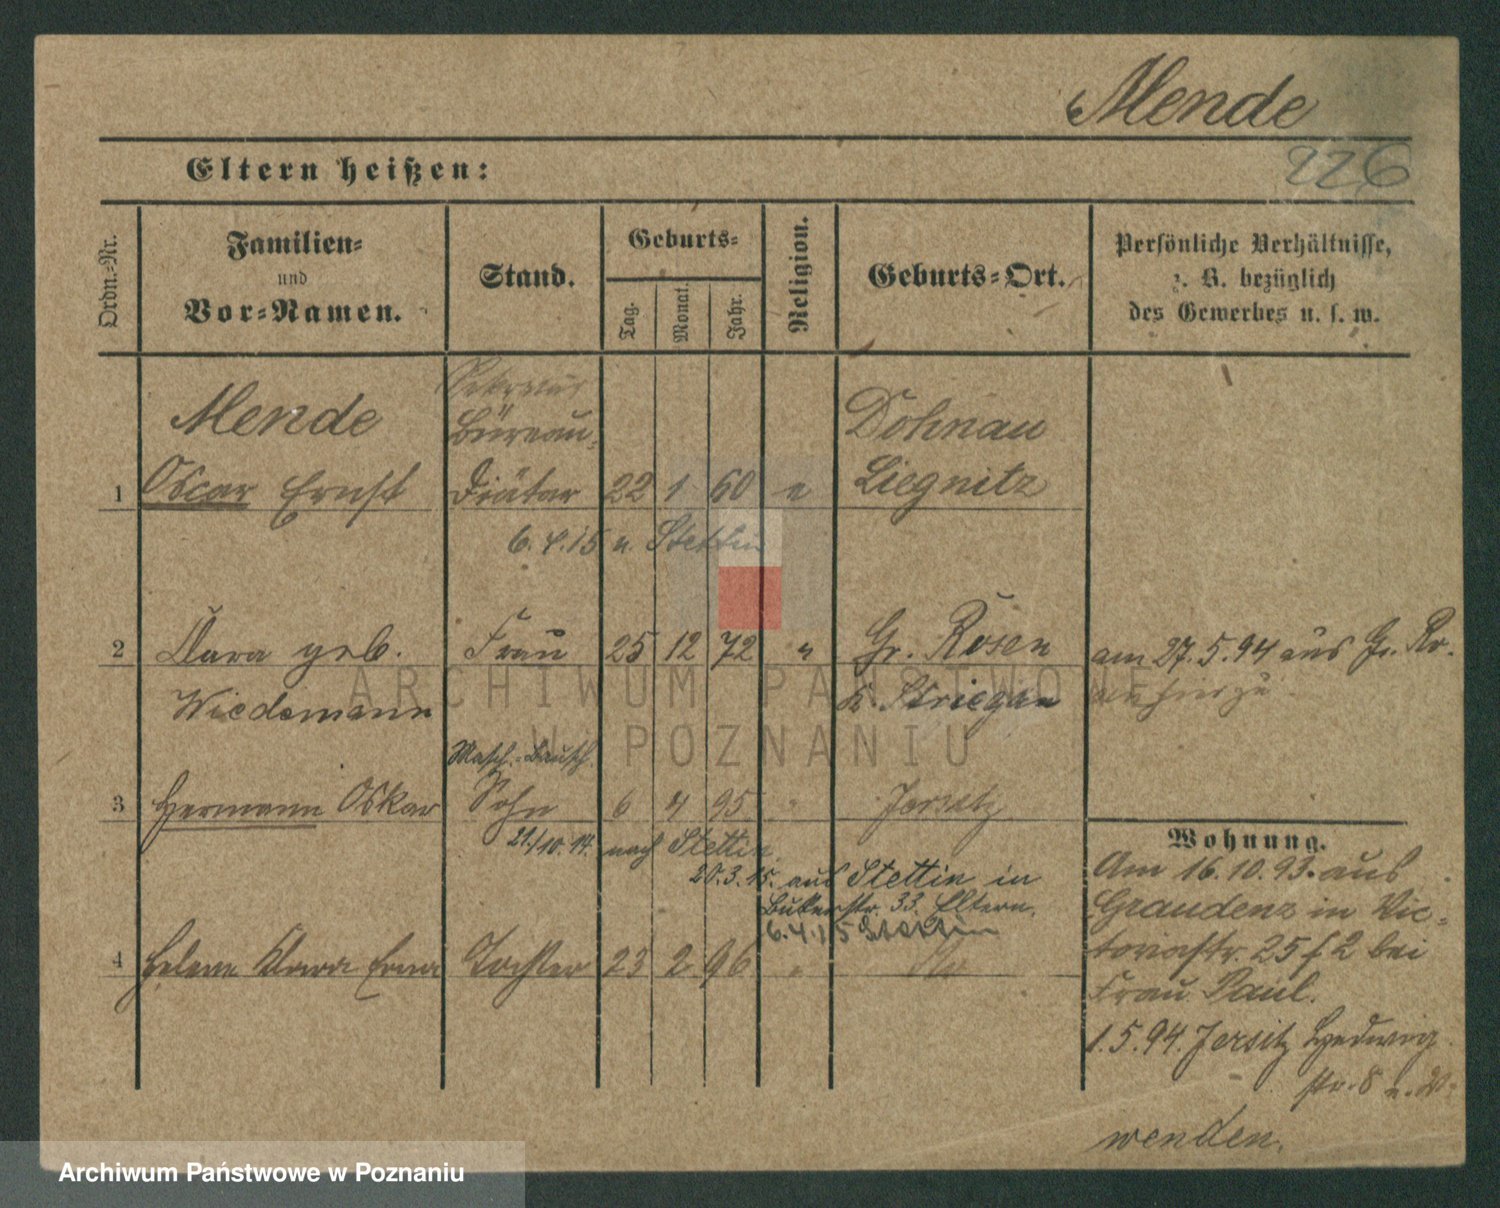 Mende
226
Eltern heißen:
Ordn.-Nr.
Familien-
und
Vor-Namen.
Stand.
Geburts-
Tag.
Monat.
Jahr.
Religion.
Geburts-Ort.
Persönliche Verhältnisse,
z. B. bezüglich
des Gewerbes u. s. w.
Sekretär
Mende
Büreau-
Dohnau
1 Oscar Ernst Diätar 22 1 60 e Liegnitz
6.4.15 n. Stettin
2 Clara geb. Frau 25 12 72 " Gr. Rosen am 27.5.94 aus Gr. Ro-
Wiedemann K. Striegau
Masch.-Bausch.
3 Hermann Oskar Sohn 6 4 95 " Jersitz
21/10.14. nach Stettin
20.3.15. aus Stettin in
Bukerstr. 33. Eltern.
6.4.15 Stettin
4 Helene Klara Erna Tochter 23 2 96 "
Wohnung.
Am 16.10.93. aus
Graudenz in Vic-
toriastr. 25 bei
Frau Paul.
1.5.94. Jersitz Hedwig
str. 8
wenden.
ARCHIWUM PAŃSTWOWE
W POZNANIU
Archiwum Państwowe w Poznaniu